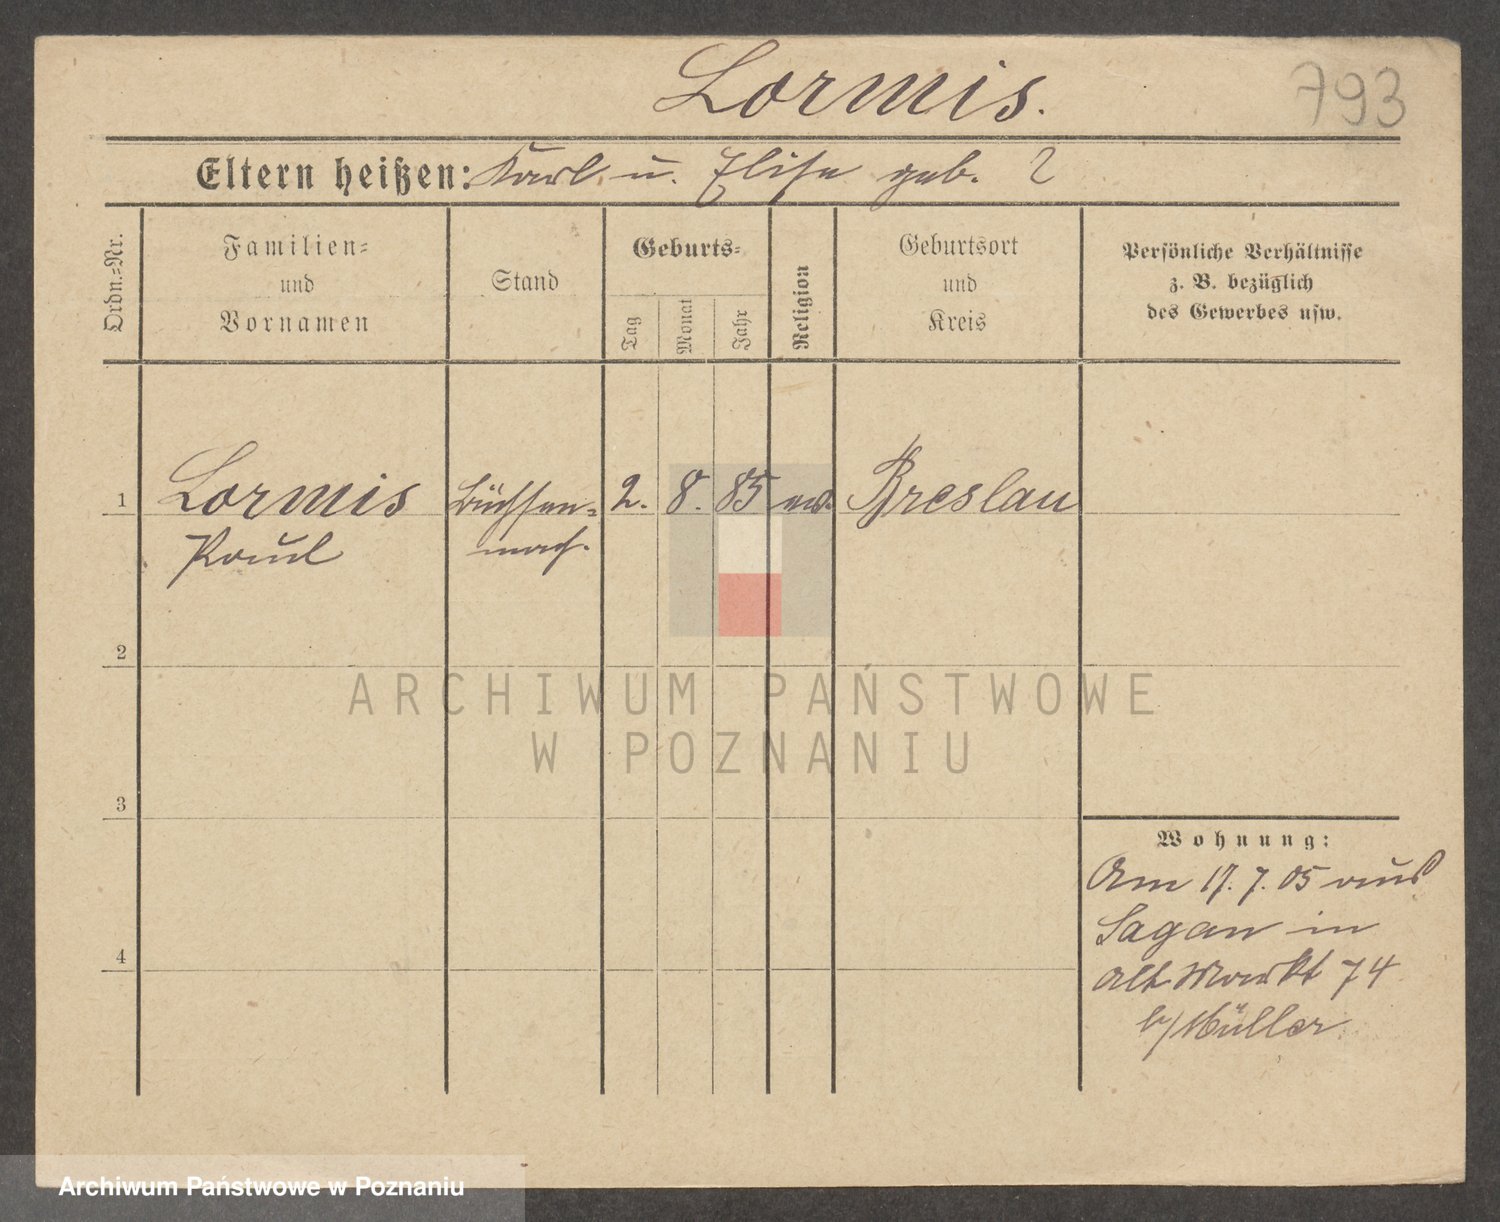 Lormis.
793
Eltern heißen: Karl u. Elise geb. ?
Ordn.-Nr.
Familien-
und
Vornamen
Stand
Geburts-
Tag
Monat
Jahr
Religion
Geburtsort
und
Kreis
Persönliche Verhältnisse
z. B. bezüglich
des Gewerbes usw.
1 Lormis Büchsen- 2. 8. 85 ev. Breslau
Paul mach.
2
ARCHIWUM PAŃSTWOWE
W POZNANIU
3
Wohnung:
Am 17. 7. 05 aus
Sagan in
Alt Markt 74
b/Müller
4
Archiwum Państwowe w Poznaniu